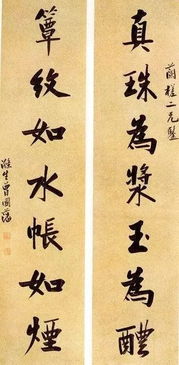 蘭樵二兄鑒
真珠為漿玉為醴
簟紋如水帳如煙
滌生曾國藩